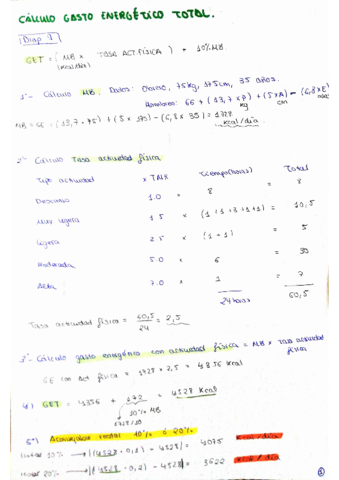 CÁLCULO GASTO ENERGÉTICO TOTAL.
Diap 1
GET = (MB x TASA ACT. FÍSICA) + 10% MB.
(kcal/día)
1º- Cálculo MB: Datos: 75kg, 175cm, 35 años.
Hombres: 66 + (13,7 x P) + (5 x A) - (6,8 x E)
kg cm años
MB = 66 + (13,7 · 75) + (5 x 175) - (6,8 x 35) = 1728
kcal/día.
2º- Cálculo Tasa actividad física:
Tipo actividad x TMR Tiempo (horas) Total
Descanso 1.0 x 8 = 8
Muy ligera 1.5 x (1+1+3+1+1) = 10,5
ligera 2.5 x (1+1) = 5
Moderada 5.0 x 6 = 30
Alta 7.0 x 1 = 7
24 horas 60,5
Tasa actividad física = 60,5 / 24 = 2,5
3º- Cálculo gasto energético con actividad física = MB x Tasa actividad
física
GE con act física = 1728 x 2,5 = 4356 kcal
4º) GET = 4356 + 172 = 4528 kcal
10% MB
1728/10
5º) Aconsejable restar 10% ó 20%
10% → |(4528 · 0,1) - 4528| = 4075 kcal/día
20% → |(4528 · 0,2) - 4528| = 3622 kcal/día